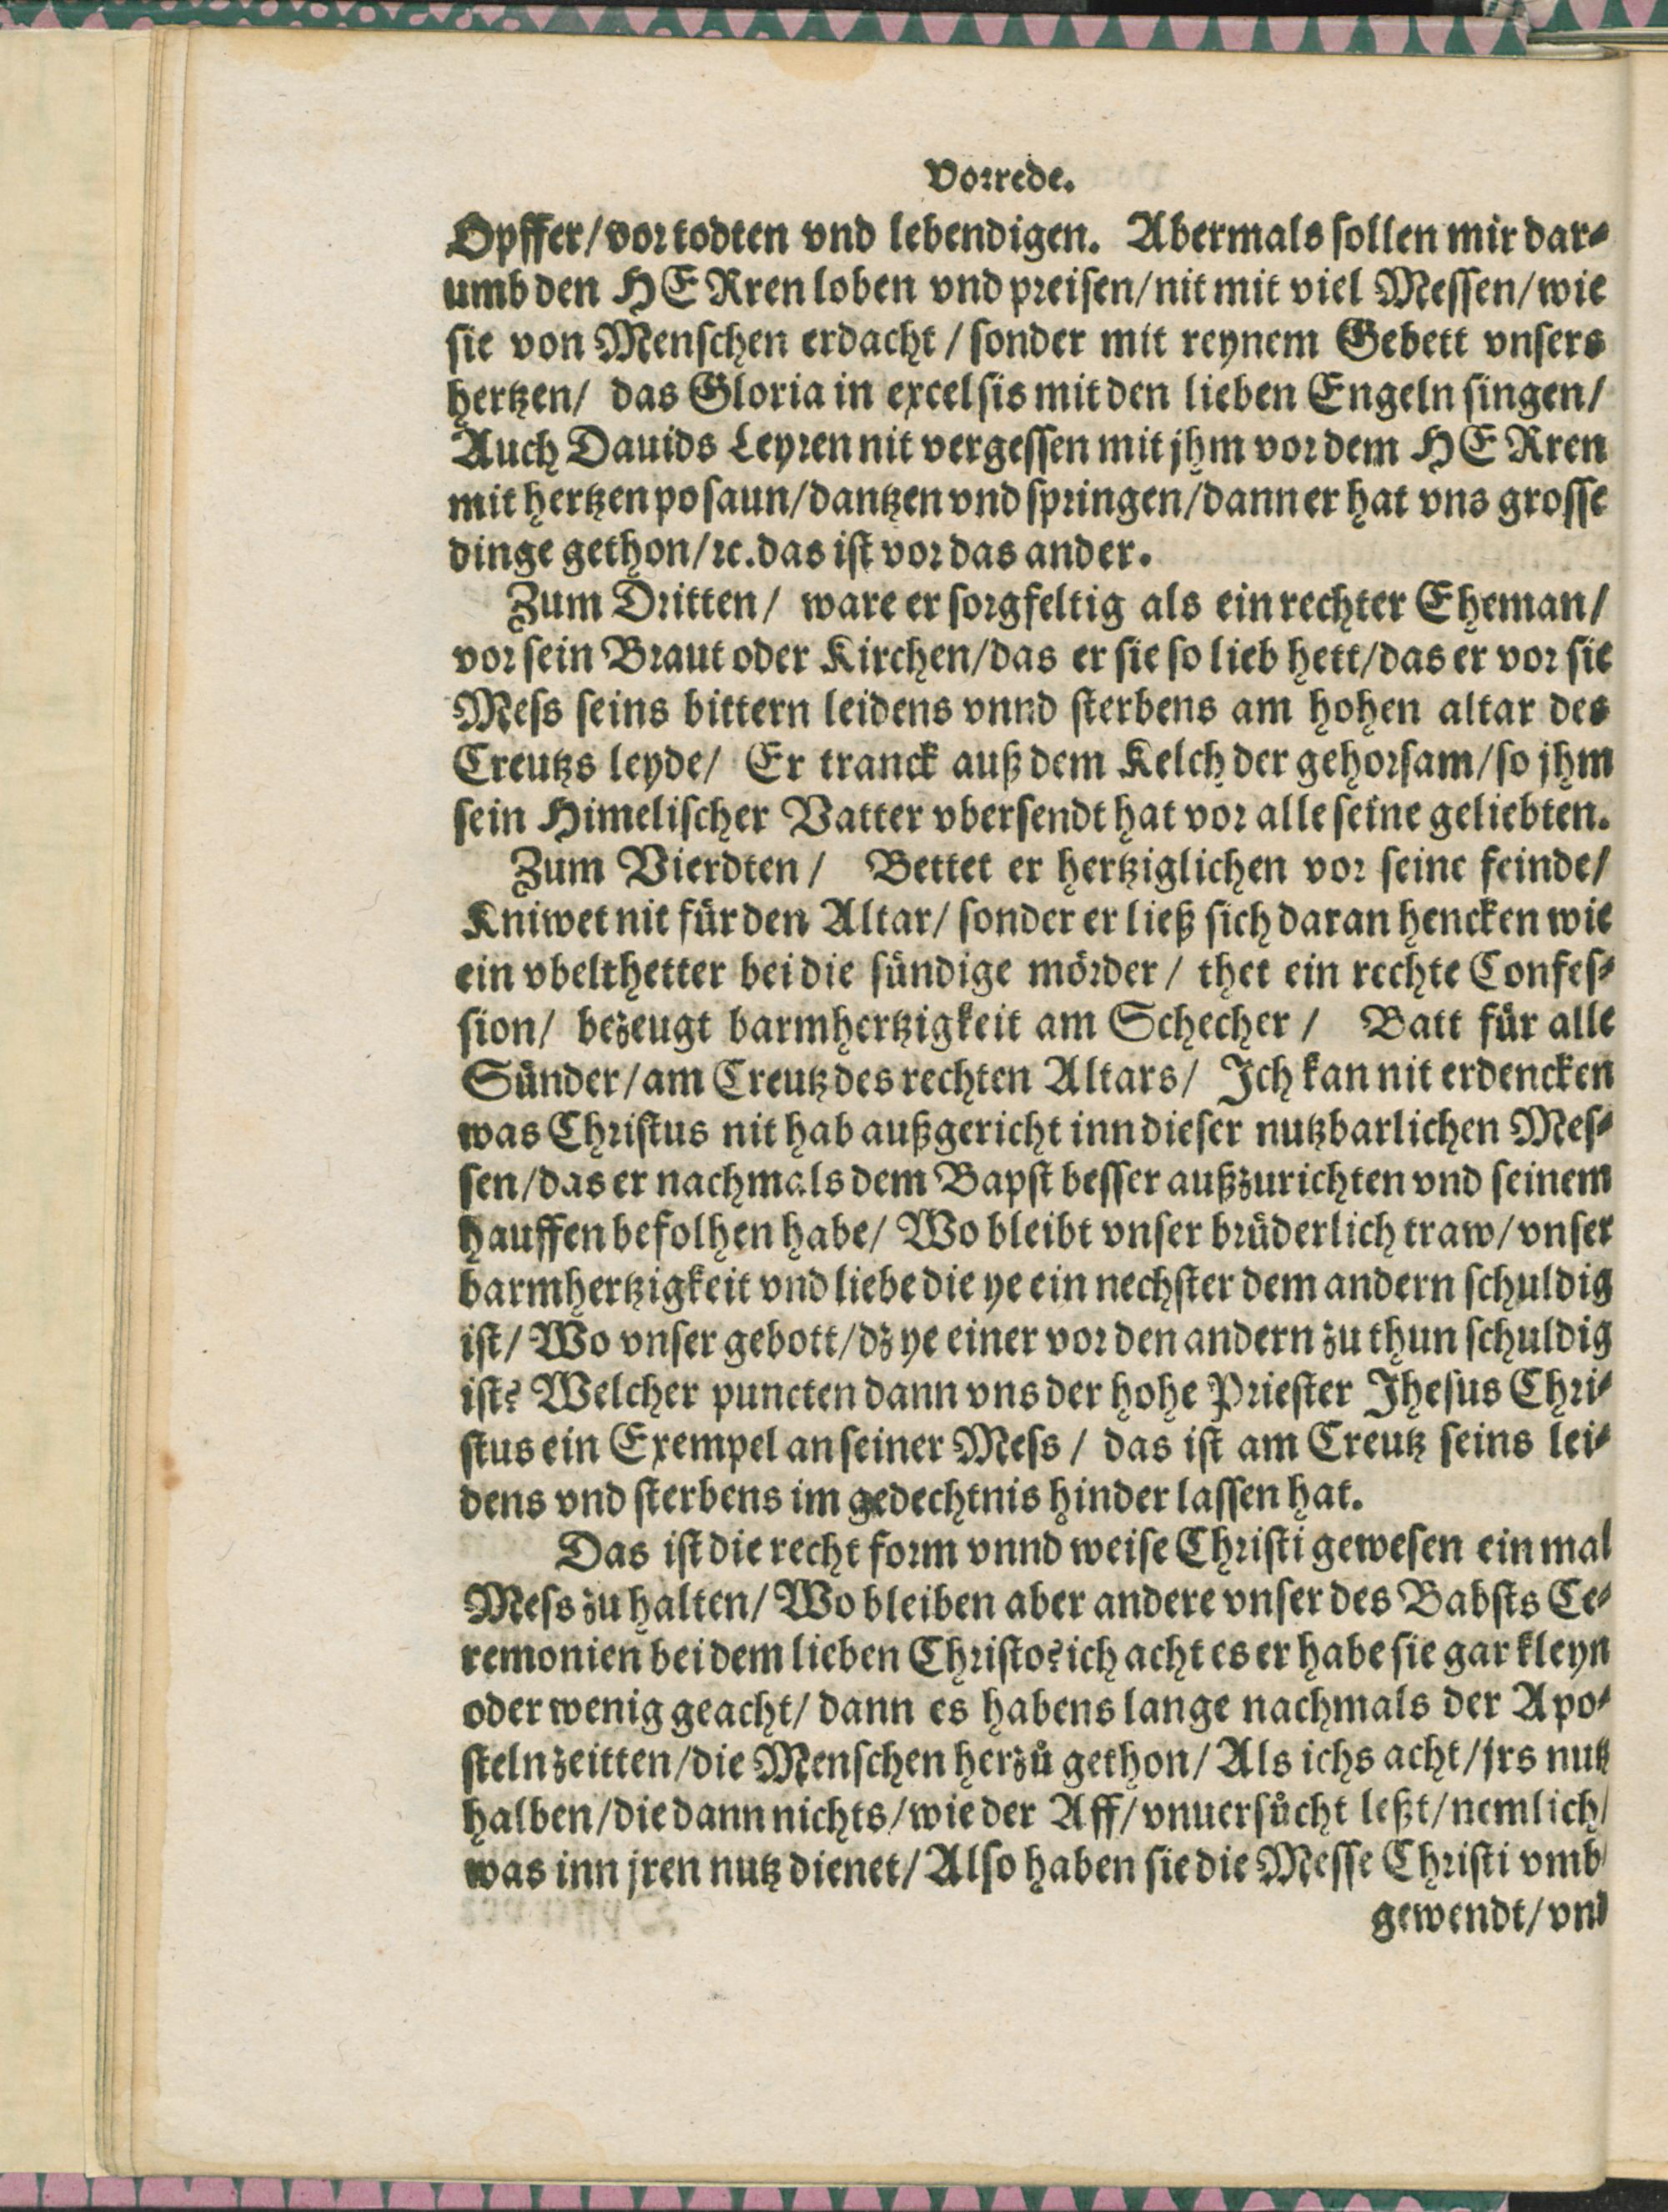 Vorrede.
Opffer/vor todten vnd lebendigen. Abermals sollen mir dar⸗
umb den HERren loben vnd preisen/nit mit viel Messen/wie
sie von Menschen erdacht/sonder mit reynem Gebett vnsers
hertzen/ das Gloria in excelsis mit den lieben Engeln singen/
Auch Dauids Leyren nit vergessen mit jhm vor dem HERren
mit hertzen posaun/dantzen vnd springen/dann er hat vns grosse
dinge gethon/ꝛc. das ist vor das ander.
Zum Dritten/ ware er sorgfeltig als ein rechter Eheman/
vor sein Braut oder Kirchen/das er sie so lieb hett/das er vor sie
Mess seins bittern leidens vnnd sterbens am hohen altar des
Creutzs leyde/ Er tranck auß dem Kelch der gehorsam/so jhm
sein Himelischer Vatter vbersendt hat vor alle seine geliebten.
Zum Vierdten/ Bettet er hertziglichen vor seine feinde/
Kniwet nit für den Altar/ sonder er ließ sich daran hencken wie
ein vbelthetter bei die sündige mörder/ thet ein rechte Confes⸗
sion/ bezeugt barmhertzigkeit am Schecher/ Batt für alle
Sünder/am Creutz des rechten Altars/ Ich kan nit erdencken
was Christus nit hab außgericht inn dieser nutzbarlichen Mes⸗
sen/das er nachmals dem Bapst besser außzurichten vnd seinem
hauffen befolhen habe/ Wo bleibt vnser brüderlich traw/vnser
barmhertzigkeit vnd liebe die ye ein nechster dem andern schuldig
ist/ Wo vnser gebott/dz ye einer vor den andern zu thun schuldig
ist? Welcher puncten dann vns der hohe Priester Jhesus Chri⸗
stus ein Exempel an seiner Mess/ das ist am Creutz seins lei⸗
dens vnd sterbens im gedechtnis hinder lassen hat.
Das ist die recht form vnnd weise Christi gewesen ein mal
Mess zu halten/ Wo bleiben aber andere vnser des Babsts Ce⸗
remonien bei dem lieben Christo? ich acht es er habe sie gar kleyn
oder wenig geacht/ dann es habens lange nachmals der Apo⸗
steln zeitten/die Menschen herzů gethon/Als ichs acht/jrs nutz
halben/die dann nichts/wie der Aff/vnuersůcht leßt/nemlich/
was inn jren nutz dienet/Also haben sie die Messe Christi vmb
gewendt/vnd